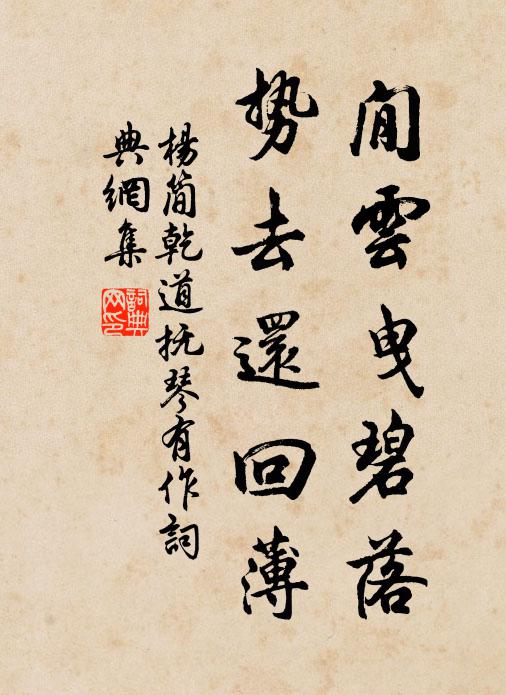 閒雲曳碧落
勢去還回薄
楊簡乾道抚琴有作詞
典網集
詞典
网印